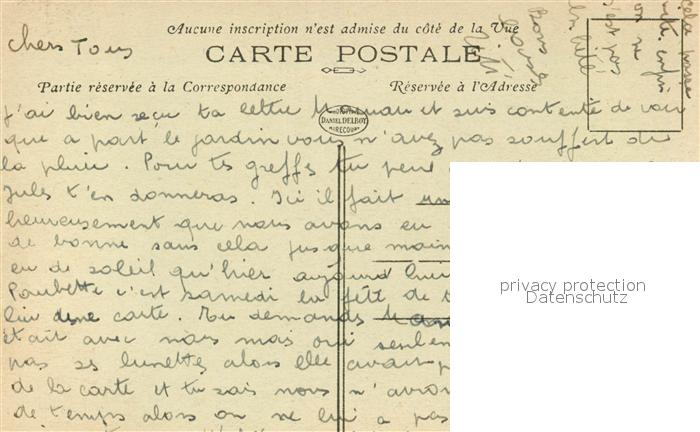 Aucune inscription n'est admise du côté de la Vue
Chers Tous
CARTE POSTALE
Partie réservée à la Correspondance
Réservée à l'Adresse
DANIEL DELBOY
MIRECOURT
J'ai bien reçu ta lettre Maman et suis contente de voir
que a part le jardin vous n'avez pas souffert de
la pluie. Pour tes greffes tu peux
Jules t'en donneras. Ici il fait un
heureusement que nous avons eu
de bonne sans cela jusque main
eu de soleil qu'hier aujourd'hui
c'est samedi la fête de
lieu d'une carte. Tu demandes
était avec nous mais oui seulem
pas ses lunettes alors elle avait p
de la carte et tu sais nous n'avon
de temps alors on ne lui a pas
privacy protection
Datenschutz